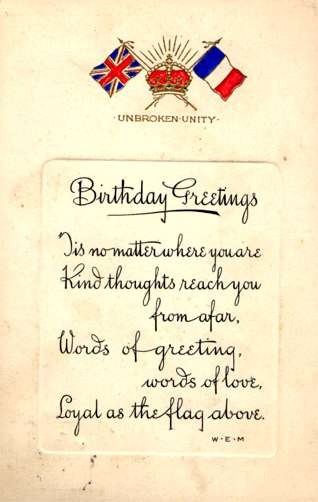 ·UNBROKEN·UNITY·
Birthday Greetings
'Tis no matter where you are
Kind thoughts reach you
from afar,
Words of greeting,
words of love,
Loyal as the flag above.
W·E·M